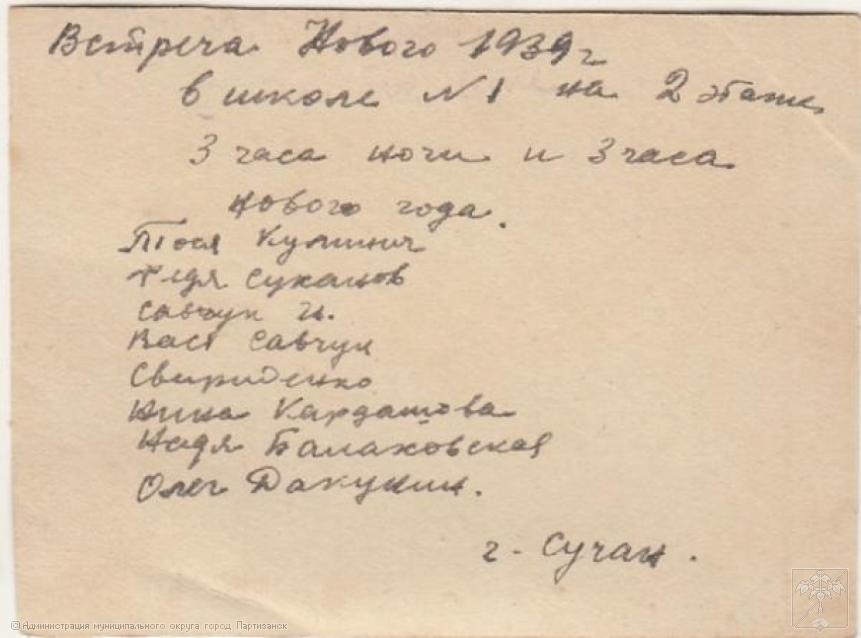 Встреча Нового 1939 г
в школе №1 на 2 этаже
3 часа ночи и 3 часа
нового года.
Тося Куминич
Федя Суханов
Савчук И.
Вася Савчук
Свириденко
Нина Кардашова
Надя Балаховская
Олег Дакукин.
г. Сучан.
© Администрация муниципального округа город Партизанск